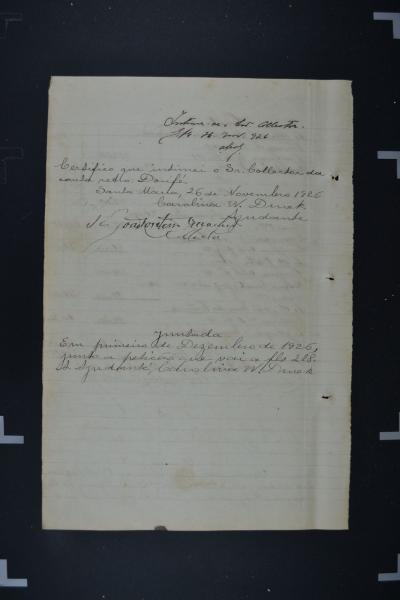 Intime-se o Snr. Collector.
26 Nov. 926
Certifico que intimei o Sr. Collector da
conta retro. Doufé.
Santa Maria, 26 de Novembro 1926
Carolina W. Druck
Ajudante
Collector
Juntada
Em primeiro de Dezembro de 1926,
junto a petição que vai a fls 218.
A Ajudante, Carolina W. Druck